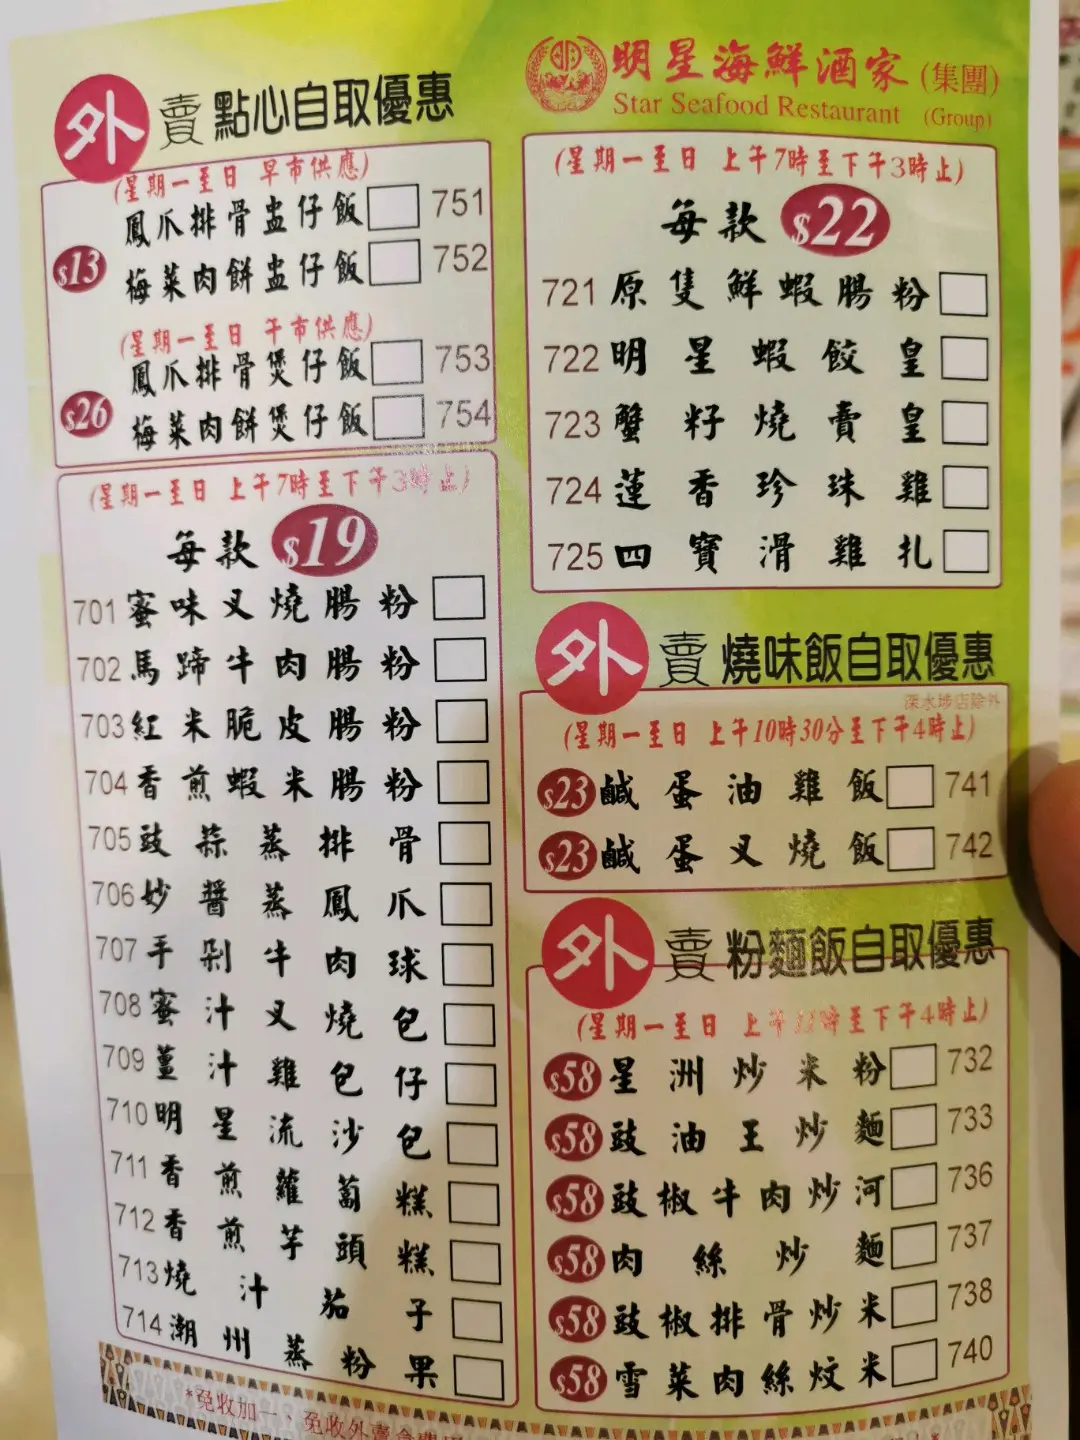 外賣點心自取優惠
(星期一至日 早市供應)
鳳爪排骨盅仔飯 751
$13
梅菜肉餅盅仔飯 752
(星期一至日 午市供應)
鳳爪排骨煲仔飯 753
$26
梅菜肉餅煲仔飯 754
(星期一至日 上午7時至下午3時止)
每款 $19
701 蜜味叉燒腸粉
702 馬蹄牛肉腸粉
703 紅米脆皮腸粉
704 香煎蝦米腸粉
705 豉蒜蒸排骨
706 妙醬蒸鳳爪
707 手剁牛肉球
708 蜜汁叉燒包
709 薑汁雞包仔
710 明星流沙包
711 香煎蘿蔔糕
712 香煎芋頭糕
713 燒汁茄子
714 潮州蒸粉果
*免收加一、免收外賣
明星海鮮酒家(集團)
Star Seafood Restaurant (Group)
(星期一至日 上午7時至下午3時止)
每款 $22
721 原隻鮮蝦腸粉
722 明星蝦餃皇
723 蟹籽燒賣皇
724 蓮香珍珠雞
725 四寶滑雞扎
外賣燒味飯自取優惠
深水埗店除外
(星期一至日 上午10時30分至下午4時止)
$23 鹹蛋油雞飯 741
$23 鹹蛋叉燒飯 742
外賣粉麵飯自取優惠
(星期一至日 上午11時至下午4時止)
$58 星洲炒米粉 732
$58 豉油王炒麵 733
$58 豉椒牛肉炒河 736
$58 肉絲炒麵 737
$58 豉椒排骨炒米 738
$58 雪菜肉絲炆米 740